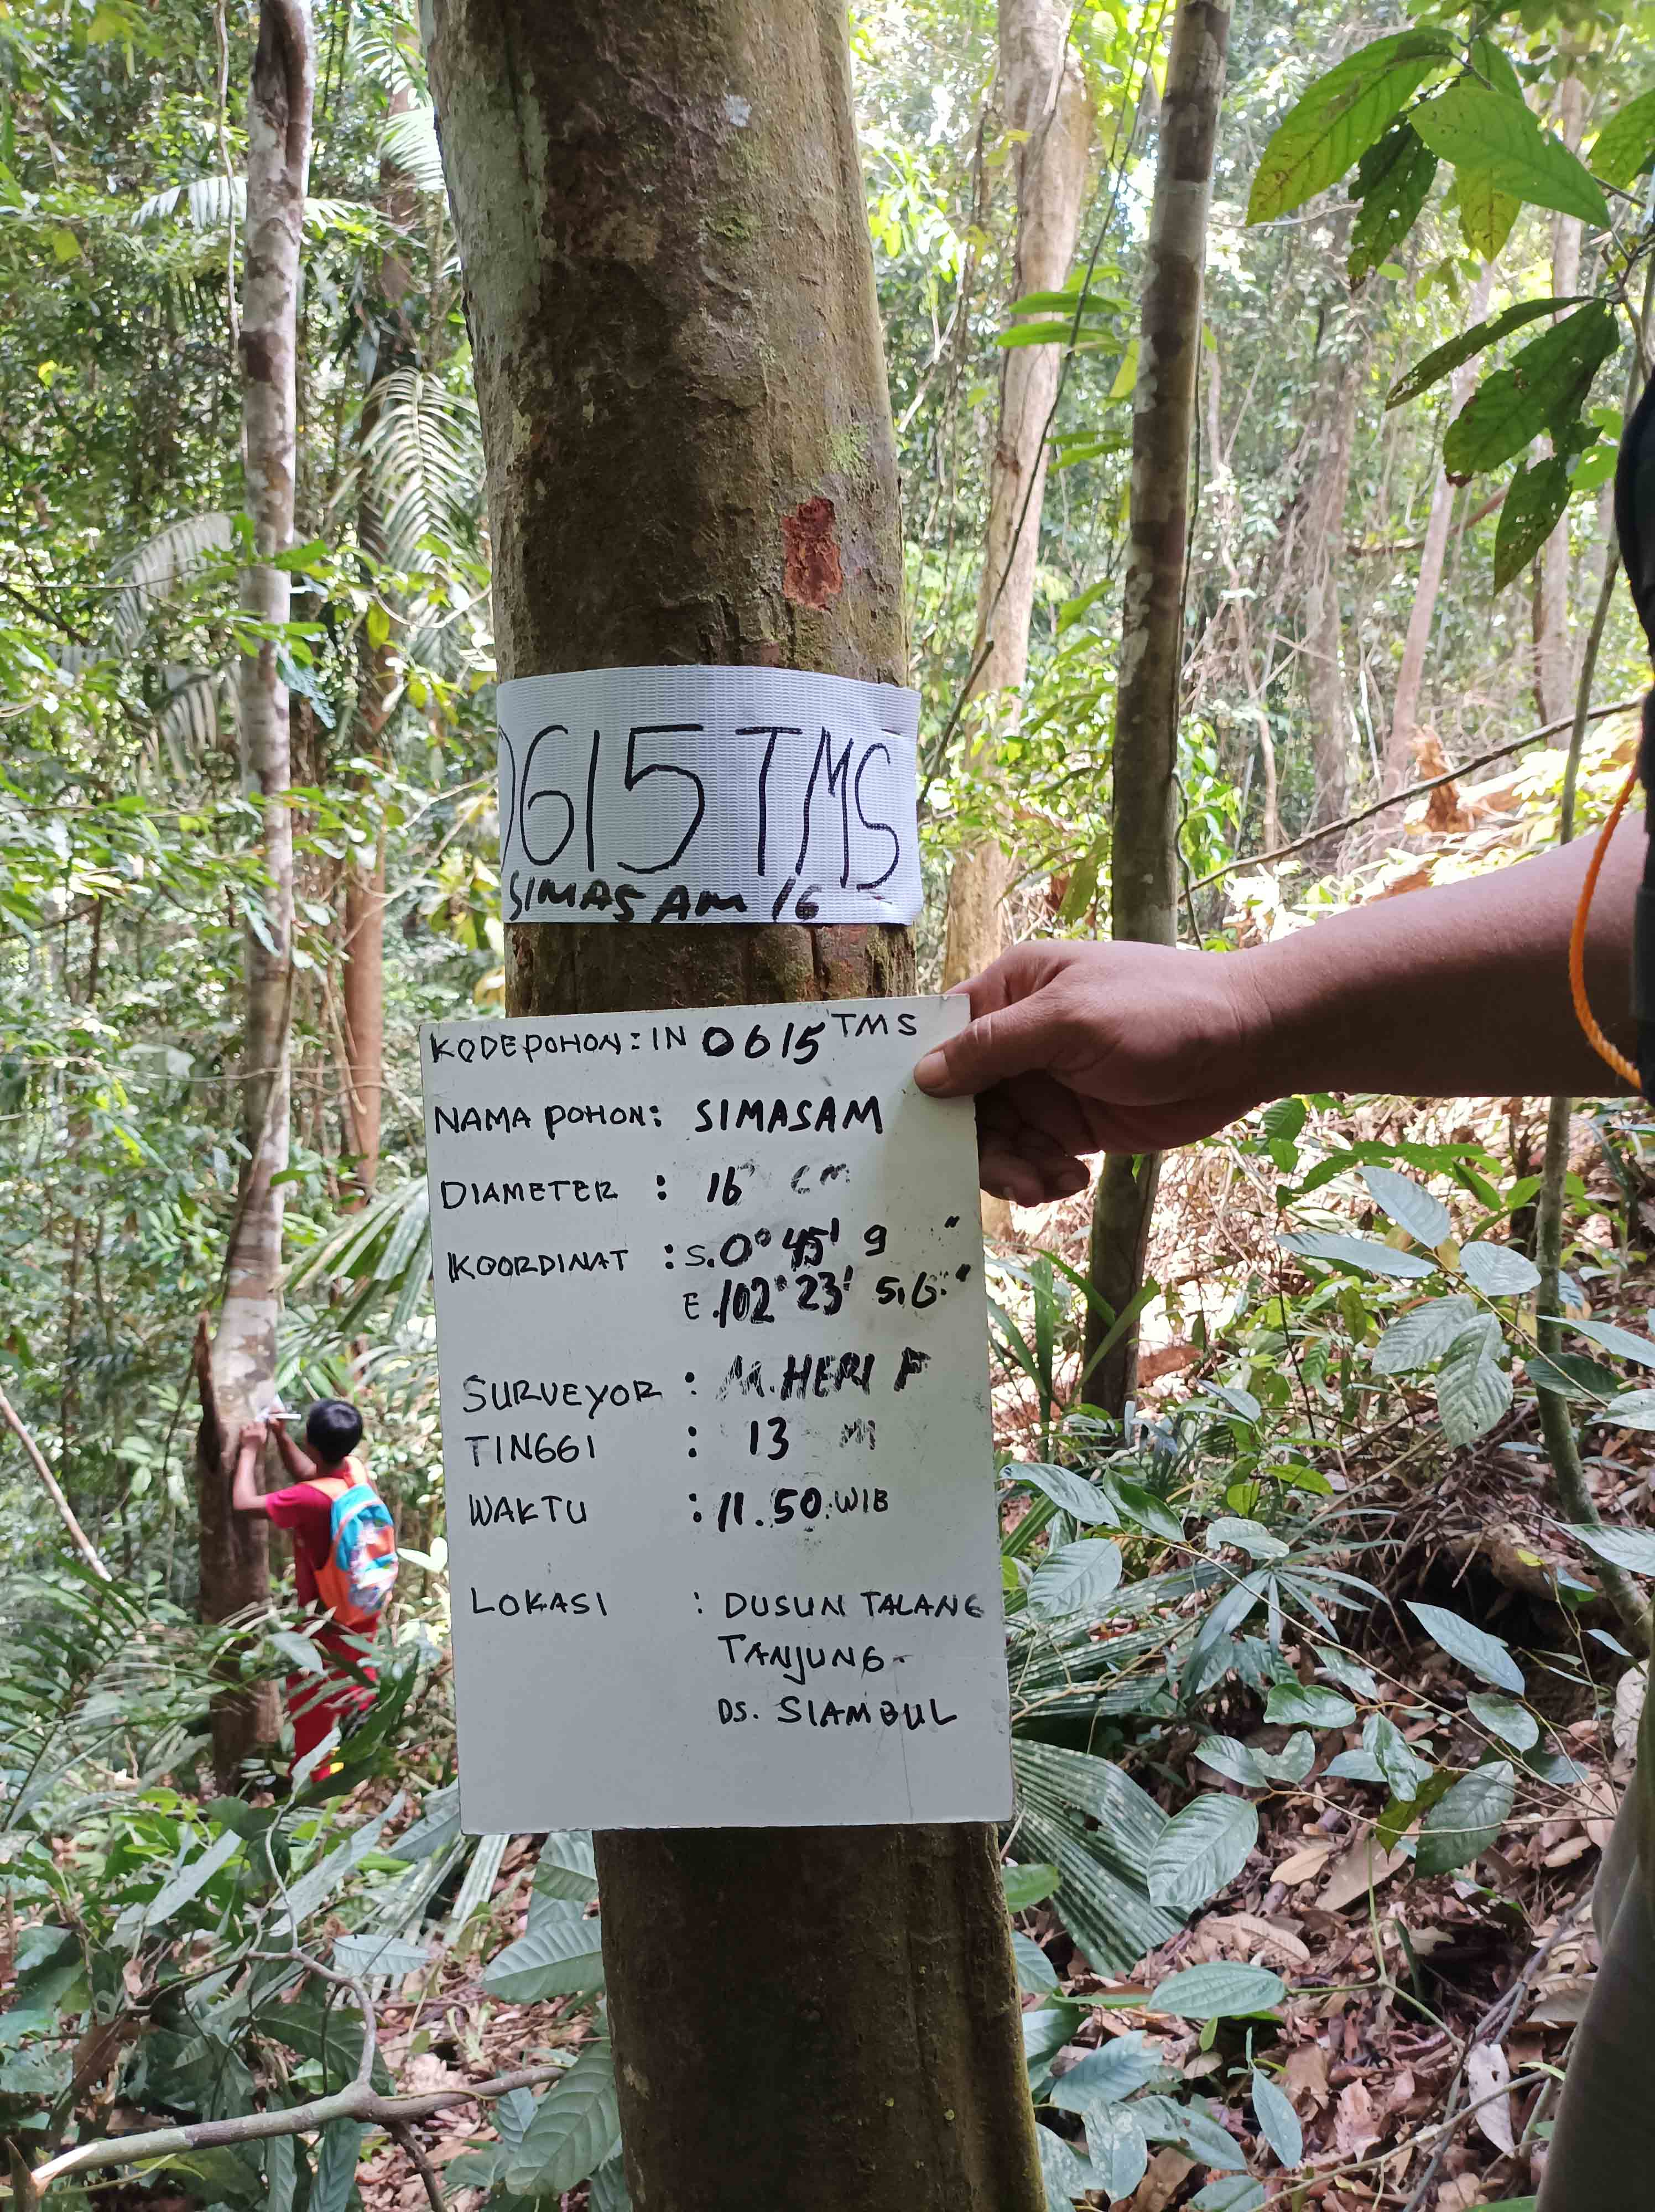 0615 TMS
SIMASAM 16
KODEPOHON: IN 0615 TMS
NAMA POHON: SIMASAM
DIAMETER : 16 CM
KOORDINAT : S. 0° 45' 9 "
E. 102° 23' 5,6."
SURVEYOR : M. HERI F
TINGGI : 13 M
WAKTU : 11.50 WIB
LOKASI : DUSUN TALANG
TANJUNG
DS. SIAMBUL